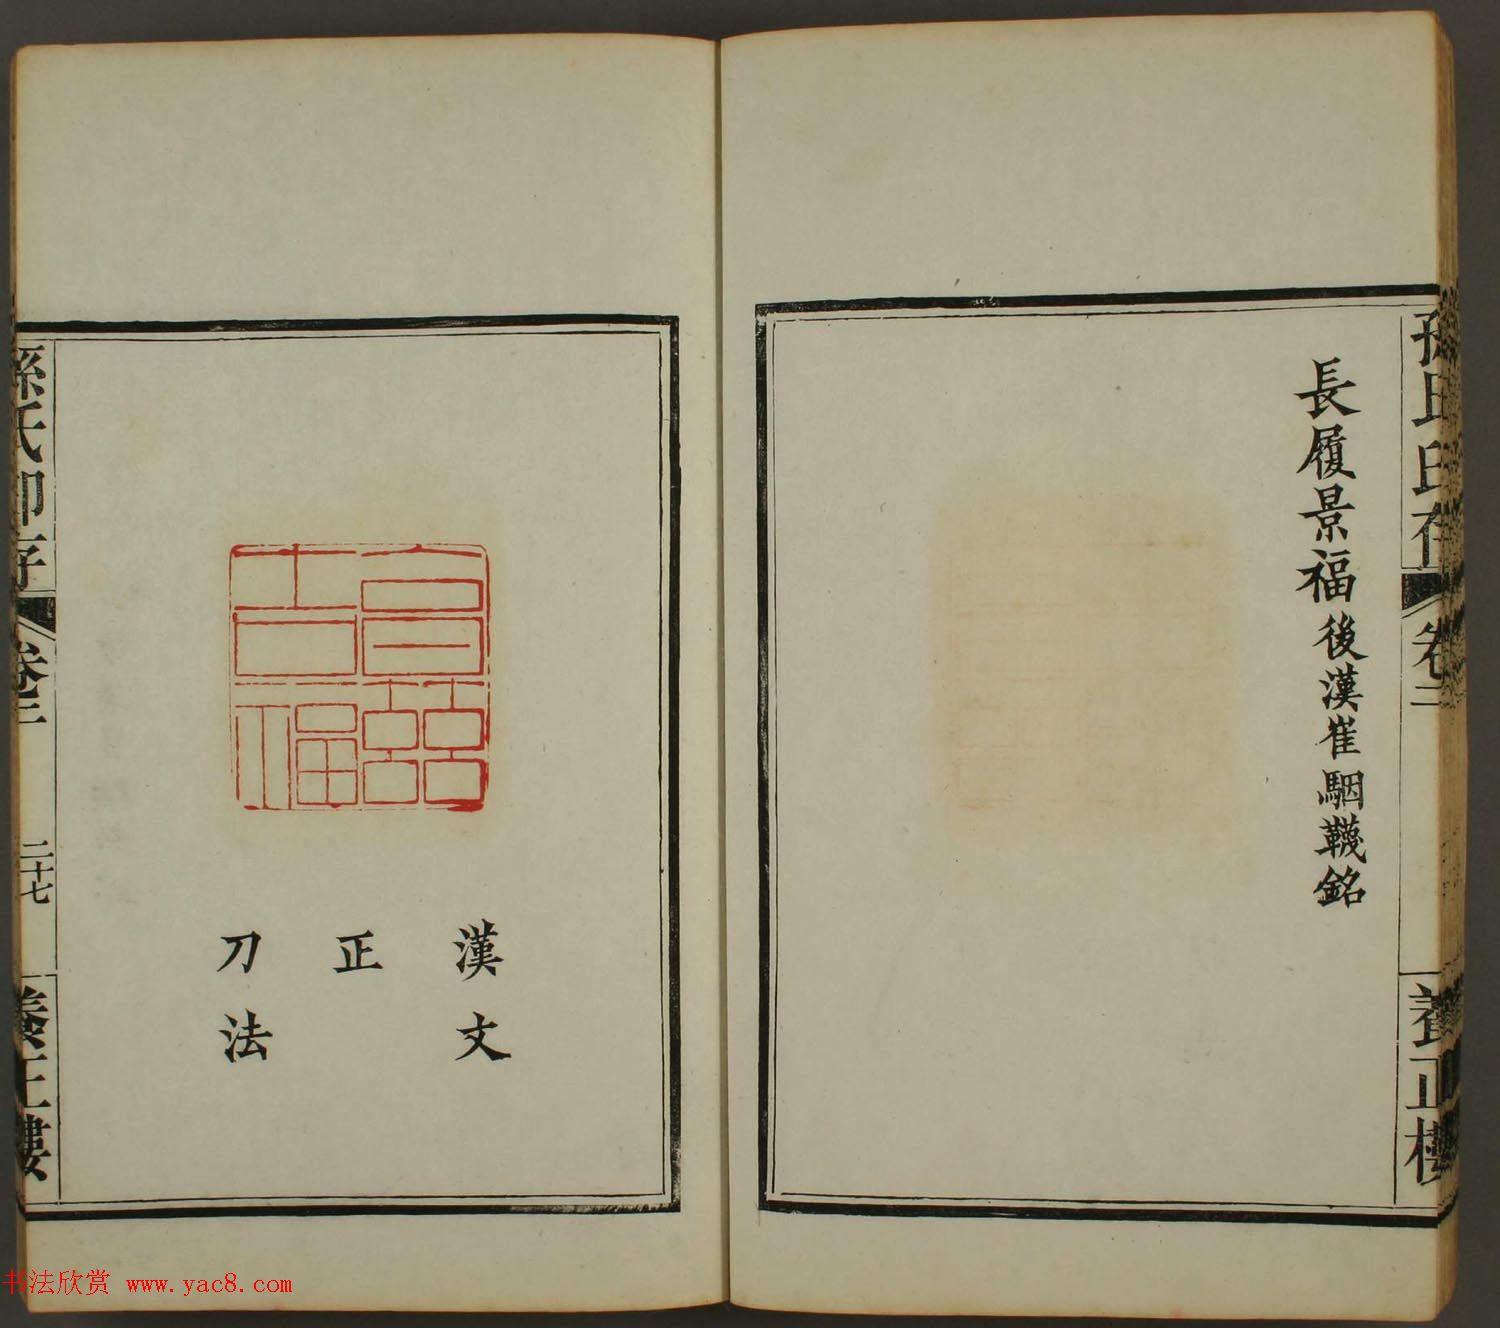 孫氏印存 卷二 養正樓
長履景福後漢崔駰韤銘
漢文
正
刀法
孫氏印存 卷二 二十七 養正樓
书法欣赏 www.yac8.com